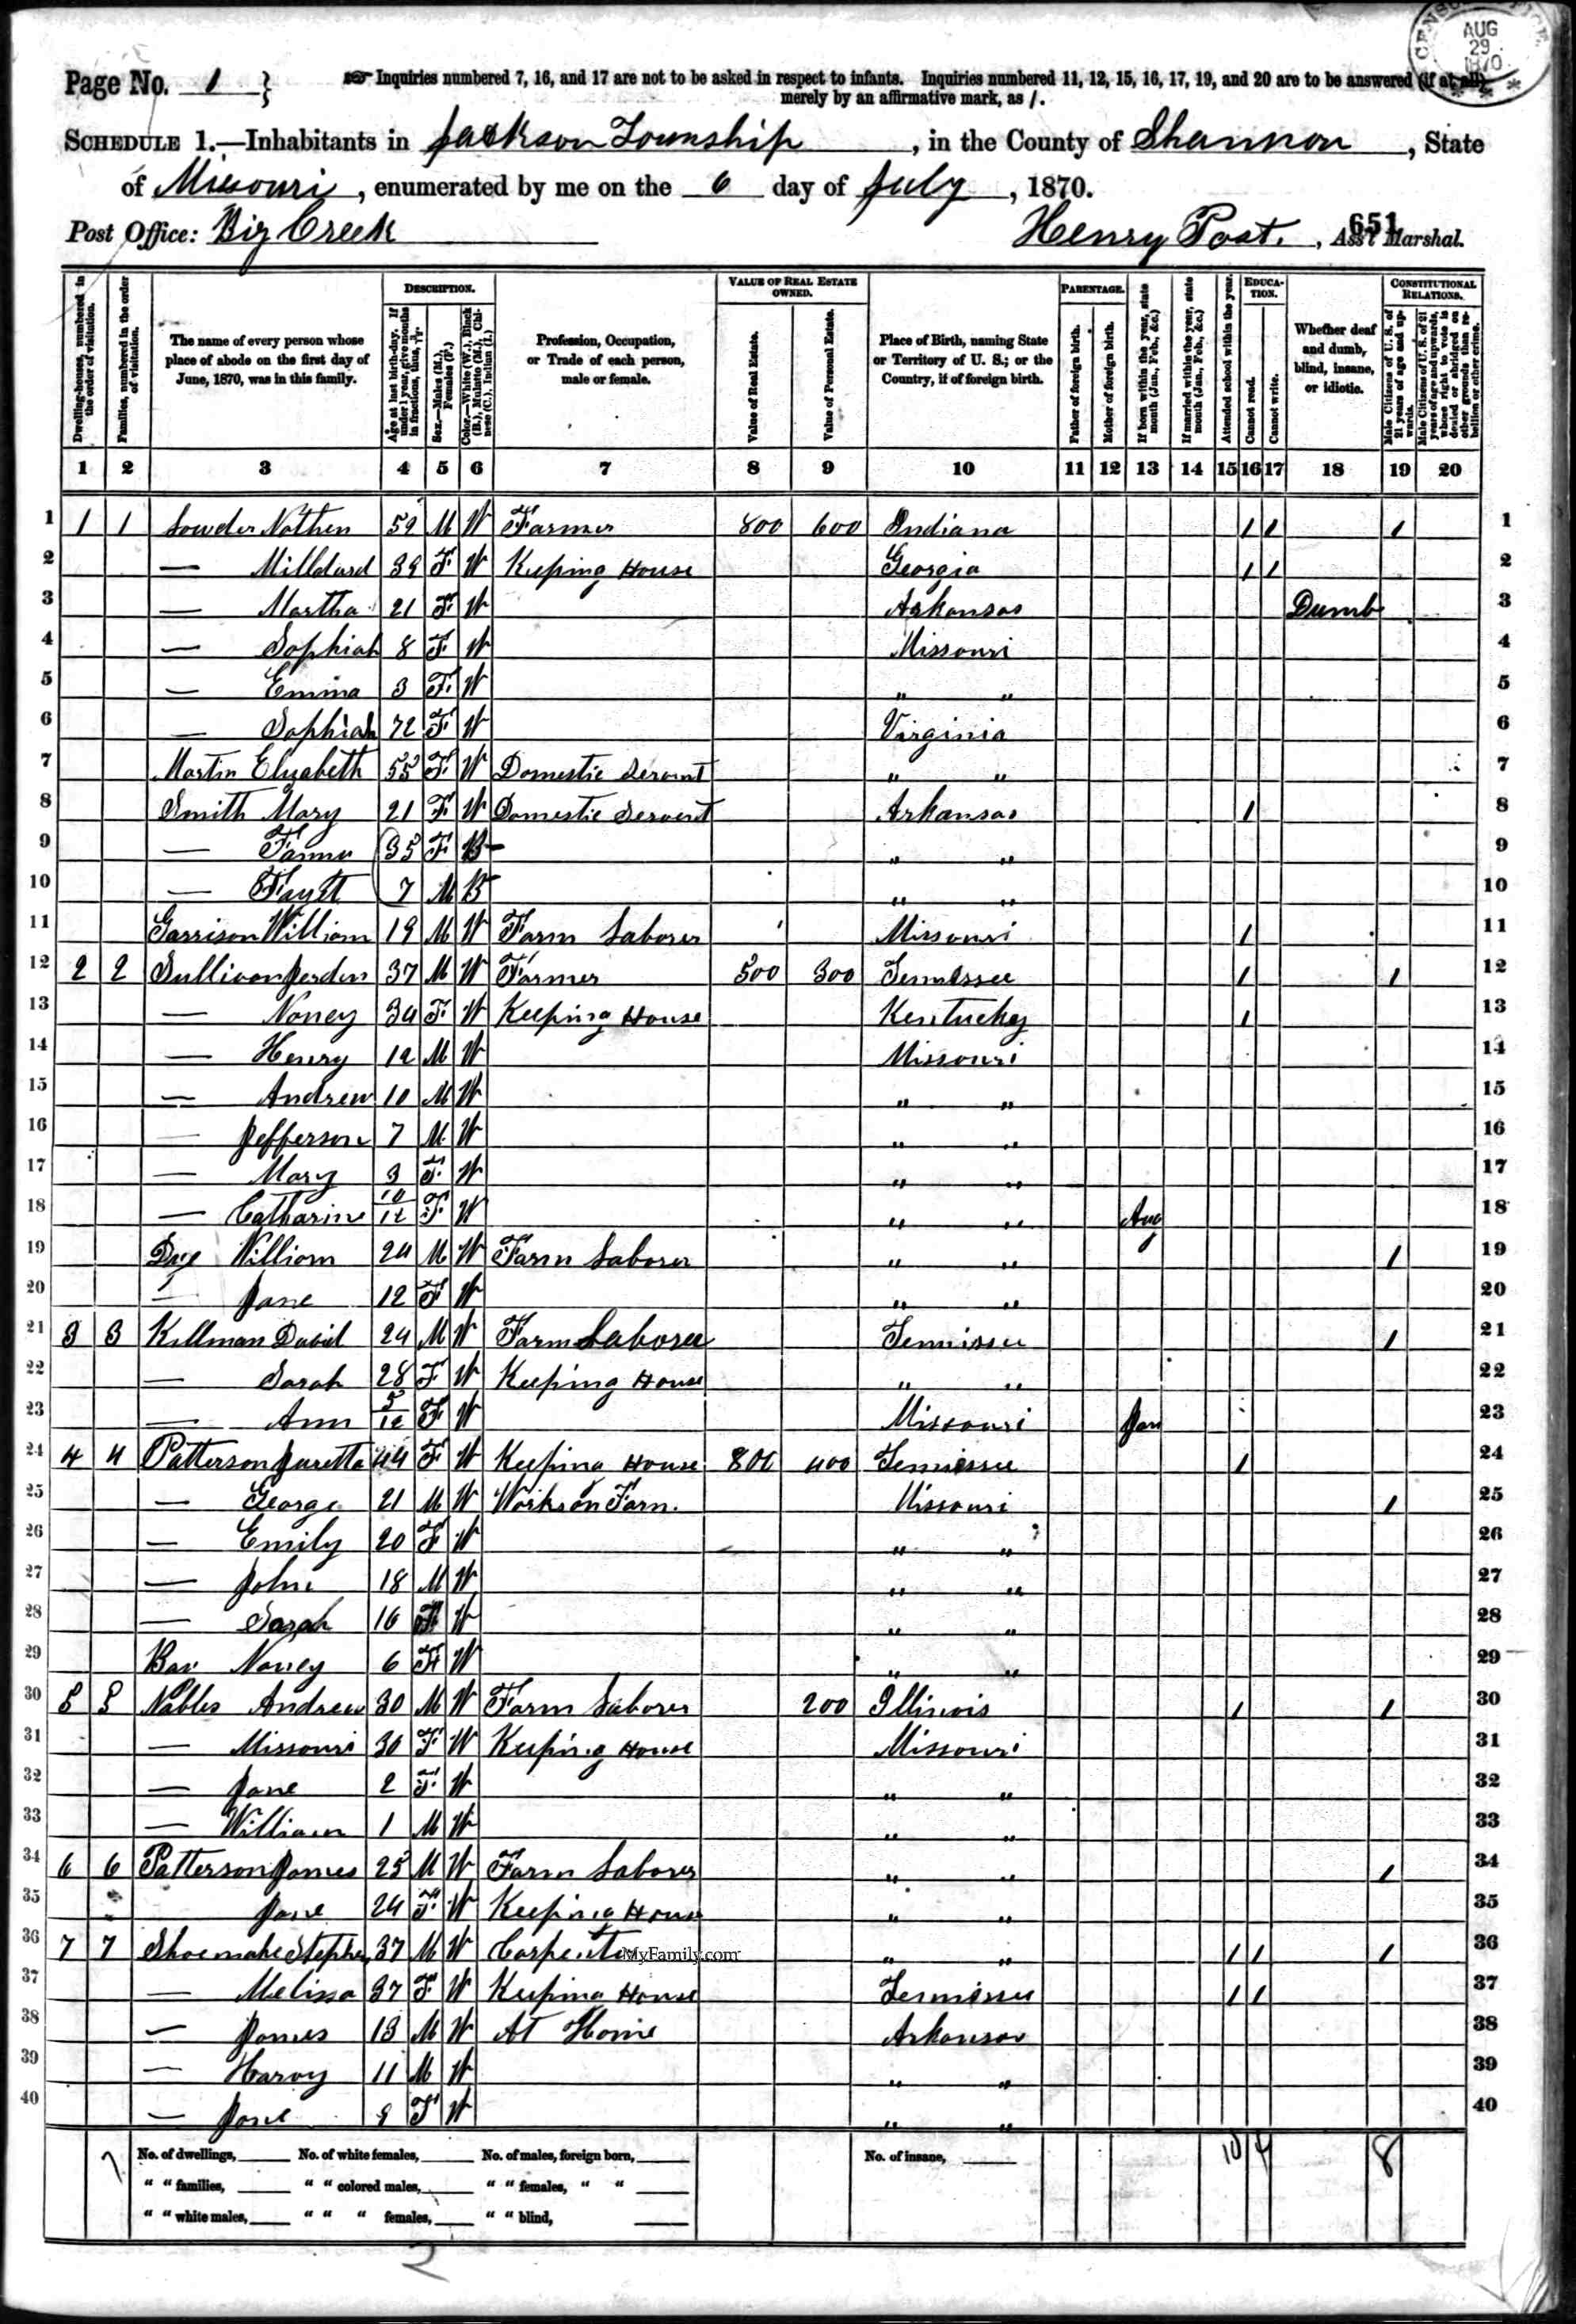 CENSUS OFFICE
AUG
29
1870
Page No. 1 } ☞ Inquiries numbered 7, 16, and 17 are not to be asked in respect to infants. Inquiries numbered 11, 12, 15, 16, 17, 19, and 20 are to be answered (if at all)
merely by an affirmative mark, as /.
SCHEDULE 1.—Inhabitants in Jackson Township, in the County of Shannon, State
of Missouri, enumerated by me on the 6 day of July, 1870.
651
Post Office: Big Creek Henry Post., Ass't Marshal.
Dwelling-houses, numbered in the order of visitation.
Families, numbered in the order of visitation.
The name of every person whose place of abode on the first day of June, 1870, was in this family.
DESCRIPTION.
Age at last birth-day. If under 1 year, give months in fractions, thus, 3/12.
Sex.—Males (M.), Females (F.)
Color.—White (W.), Black (B.), Mulatto (M.), Chinese (C.), Indian (I.)
Profession, Occupation, or Trade of each person, male or female.
VALUE OF REAL ESTATE OWNED.
Value of Real Estate.
Value of Personal Estate.
Place of Birth, naming State or Territory of U. S.; or the Country, if of foreign birth.
PARENTAGE.
Father of foreign birth.
Mother of foreign birth.
If born within the year, state month (Jan., Feb., &c.)
If married within the year, state month (Jan., Feb., &c.)
EDUCATION.
Attended school within the year.
Cannot read.
Cannot write.
Whether deaf and dumb, blind, insane, or idiotic.
CONSTITUTIONAL RELATIONS.
Male Citizens of U. S. of 21 years of age and upwards.
Male Citizens of U. S. of 21 years of age and upwards, whose right to vote is denied or abridged on other grounds than rebellion or other crime.
1 2 3 4 5 6 7 8 9 10 11 12 13 14 15 16 17 18 19 20
1 1 1 Sowder Nathen M W Farmer 800 600 Indiana / / / 1
2 — Milldard 39 F W Keeping House Georgia / / 2
3 — Martha 21 F W Arkansas Dumb 3
4 — Sophiah 8 F W Missouri 4
5 — Emma 3 F W " " 5
6 — Sophiah 72 F W Virginia 6
7 Martin Elizabeth 55 F W Domestic Servent " " 7
8 Smith Mary 21 F W Domestic Servent Arkansas / 8
9 — 35 F B " " 9
10 — 7 M B " " 10
11 Garrison William 19 M W Farm Laborer Missouri / 11
12 2 2 Sullivan Jerden 37 M W Farmer 500 300 Tennessee / / 12
13 — Nancy 34 F W Keeping House Kentucky / 13
14 — Henry 12 M W Missouri 14
15 — Andrew 10 M W " " 15
16 — Jefferson 7 M W " " 16
17 — Mary 3 F W " " 17
18 — Catharine 10/12 F W " " Aug 18
19 Dye William 24 M W Farm Laborer " " / 19
20 — Jane 12 F W " " 20
21 3 3 Killman David 24 M W Farm Laborer Tennissee / 21
22 — Sarah 28 F W Keeping House " " 22
23 — Ann 5/12 F W Missouri Jan 23
24 4 4 Patterson Juretta 44 F W Keeping House 800 400 Tennissee / 24
25 — George 21 M W Works on Farm. Missouri / 25
26 — Emily 20 F W " " 26
27 — John 18 M W " " 27
28 — Sarah 16 F W " " 28
29 Nancy 6 F W " " 29
30 5 5 Nables Andrew 30 M W Farm Laborer 200 Illinois / / 30
31 — Missouri 30 F W Keeping House Missouri 31
32 — Jane 2 F W " " 32
33 — William 1 M W " " 33
34 6 6 Patterson James 25 M W Farm Laborer " " / 34
35 Jane 24 F W Keeping House " " 35
36 7 7 Shoemake Stephen 37 M W Carpenter " " / / / 36
MyFamily.com
37 — Melissa 37 F W Keeping House Tennissee / / 37
38 — James 13 M W At Home Arkansas 38
39 — Harvy 11 M W " " 39
40 — Jane 9 F W " " 40
7 No. of dwellings, No. of white females, No. of males, foreign born, No. of insane, 10 4 8
" " families, " " colored males, " " females, " "
" " white males, " " " females, " " blind,
2